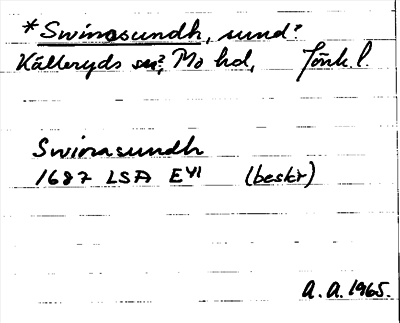 *Swinasundh, sund?
Källeryds sn?, Mo hd, Jönk. l.
Swinasundh
1687 LSA E41 (beskr)
A.A. 1965.